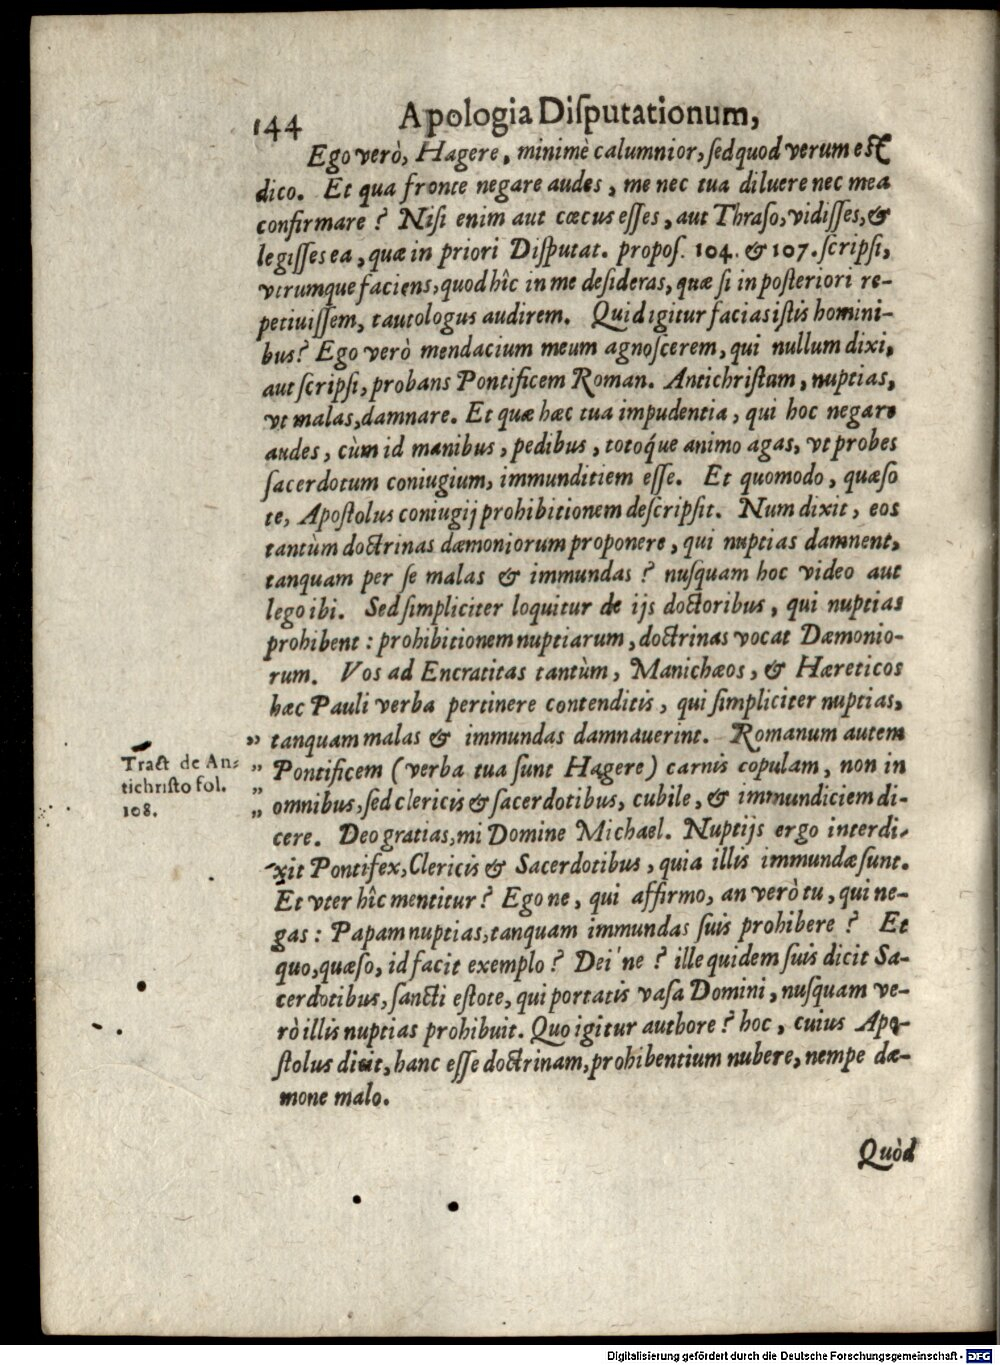 144 Apologia Diſputationum,
Ego verò, Hagere, minimè calumnior, ſed quod verum eſt
dico. Et qua fronte negare audes, me nec tua diluere nec mea
confirmare? Niſi enim aut cæcus eſſes, aut Thraſo, vidiſſes, &
legiſſes ea, quæ in priori Diſputat. propoſ. 104. & 107. ſcripſi,
vtrumque faciens, quod hîc in me deſideras, quæ ſi in poſteriori re-
petiuiſſem, tautologus audirem. Quid igitur facias iſtis homini-
bus? Ego verò mendacium meum agnoſcerem, qui nullum dixi,
aut ſcripſi, probans Pontificem Roman. Antichriſtum, nuptias,
vt malas, damnare. Et quæ hæc tua impudentia, qui hoc negare
audes, cùm id manibus, pedibus, totoq́ue animo agas, vt probes
ſacerdotum coniugium, immunditiem eſſe. Et quomodo, quæſo
te, Apoſtolus coniugij prohibitionem deſcripſit. Num dixit, eos
tantùm doctrinas dæmoniorum proponere, qui nuptias damnent,
tanquam per ſe malas & immundas? nuſquam hoc video aut
lego ibi. Sed ſimpliciter loquitur de ijs doctoribus, qui nuptias
prohibent: prohibitionem nuptiarum, doctrinas vocat Dæmonio-
rum. Vos ad Encratitas tantùm, Manichæos, & Hæreticos
hæc Pauli verba pertinere contenditis, qui ſimpliciter nuptias,
„ tanquam malas & immundas damnauerint. Romanum autem
„ Pontificem (verba tua ſunt Hagere) carnis copulam, non in
„ omnibus, ſed clericis & ſacerdotibus, cubile, & immundiciem di-
cere. Deo gratias, mi Domine Michael. Nuptijs ergo interdi-
xit Pontifex, Clericis & Sacerdotibus, quia illis immundæ ſunt.
Et vter hîc mentitur? Ego ne, qui affirmo, an verò tu, qui ne-
gas: Papam nuptias, tanquam immundas ſuis prohibere? Et
quo, quæſo, id facit exemplo? Dei'ne? ille quidem ſuis dicit Sa-
cerdotibus, ſancti eſtote, qui portatis vaſa Domini, nuſquam ve-
rò illis nuptias prohibuit. Quo igitur authore? hoc, cuius Apo-
ſtolus dicit, hanc eſſe doctrinam, prohibentium nubere, nempe dæ-
mone malo.
Quòd
Tract de An-
tichriſto fol.
108.
Digitalisierung gefördert durch die Deutsche Forschungsgemeinschaft - DFG